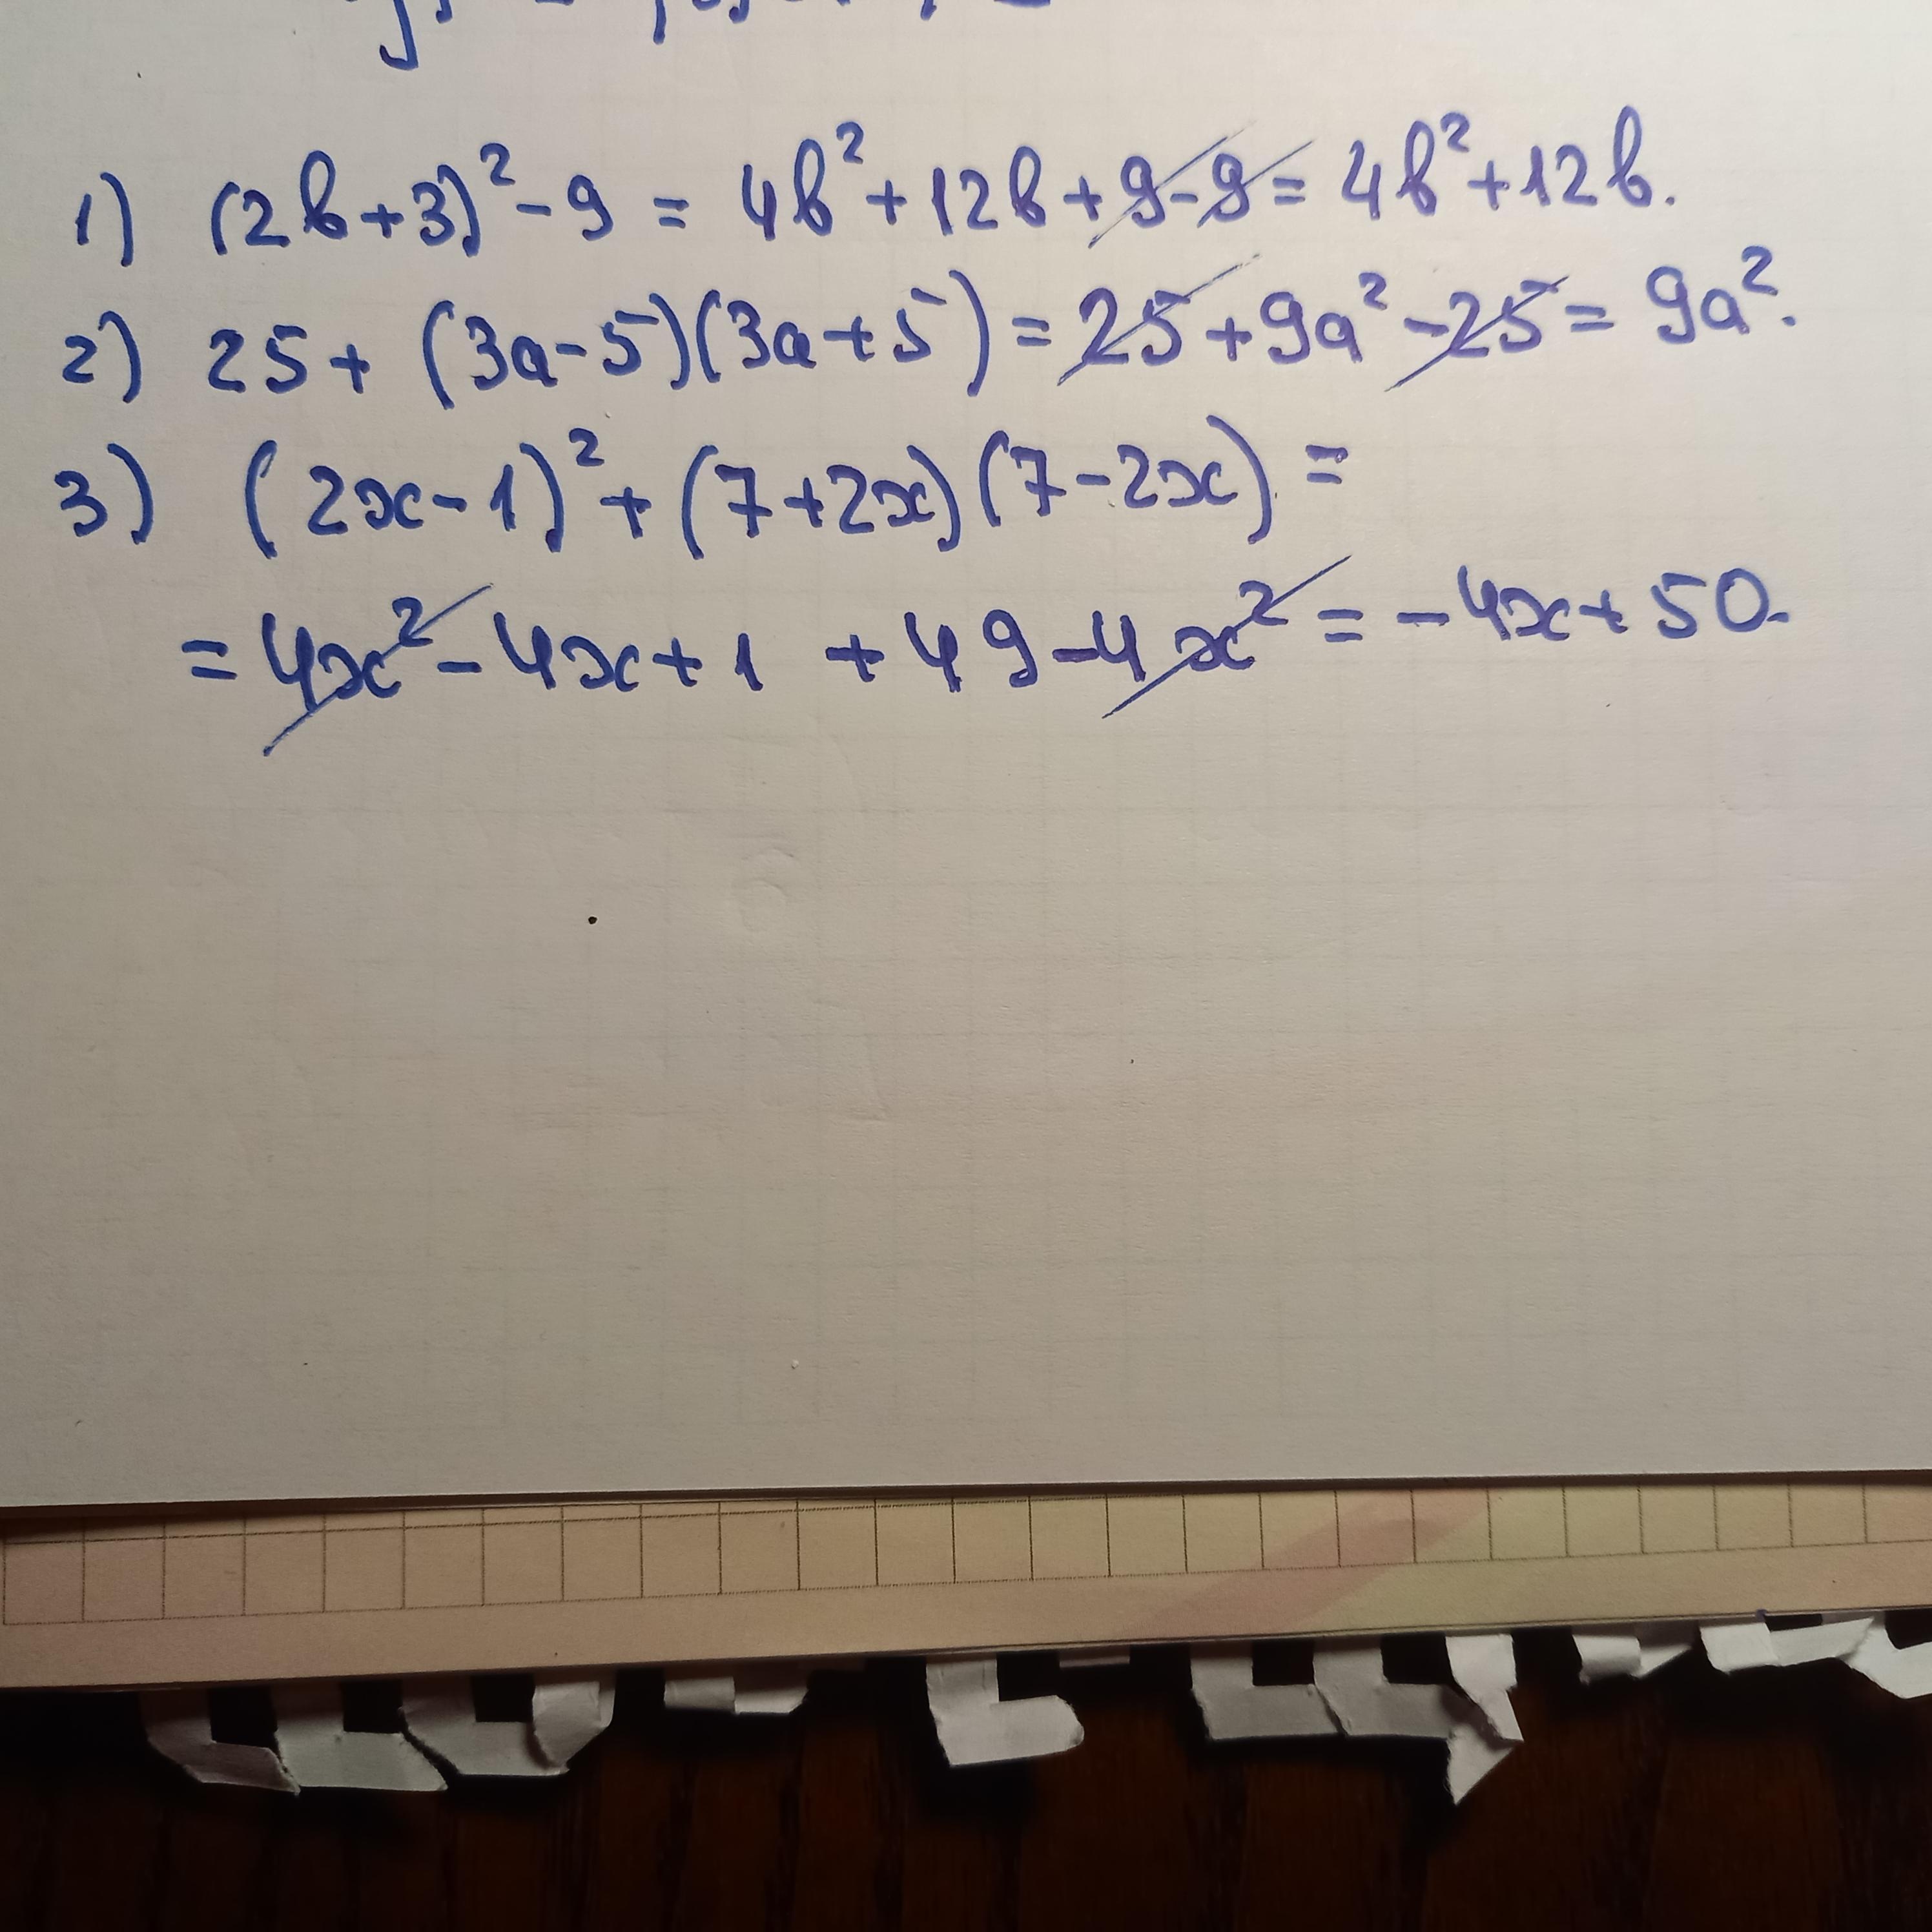 1) (2b+3)² - 9 = 4b² + 12b + 9 - 9 = 4b² + 12b.
2) 25 + (3a - 5)(3a + 5) = 25 + 9a² - 25 = 9a².
3) (2x - 1)² + (7 + 2x)(7 - 2x) =
= 4x² - 4x + 1 + 49 - 4x² = -4x + 50.